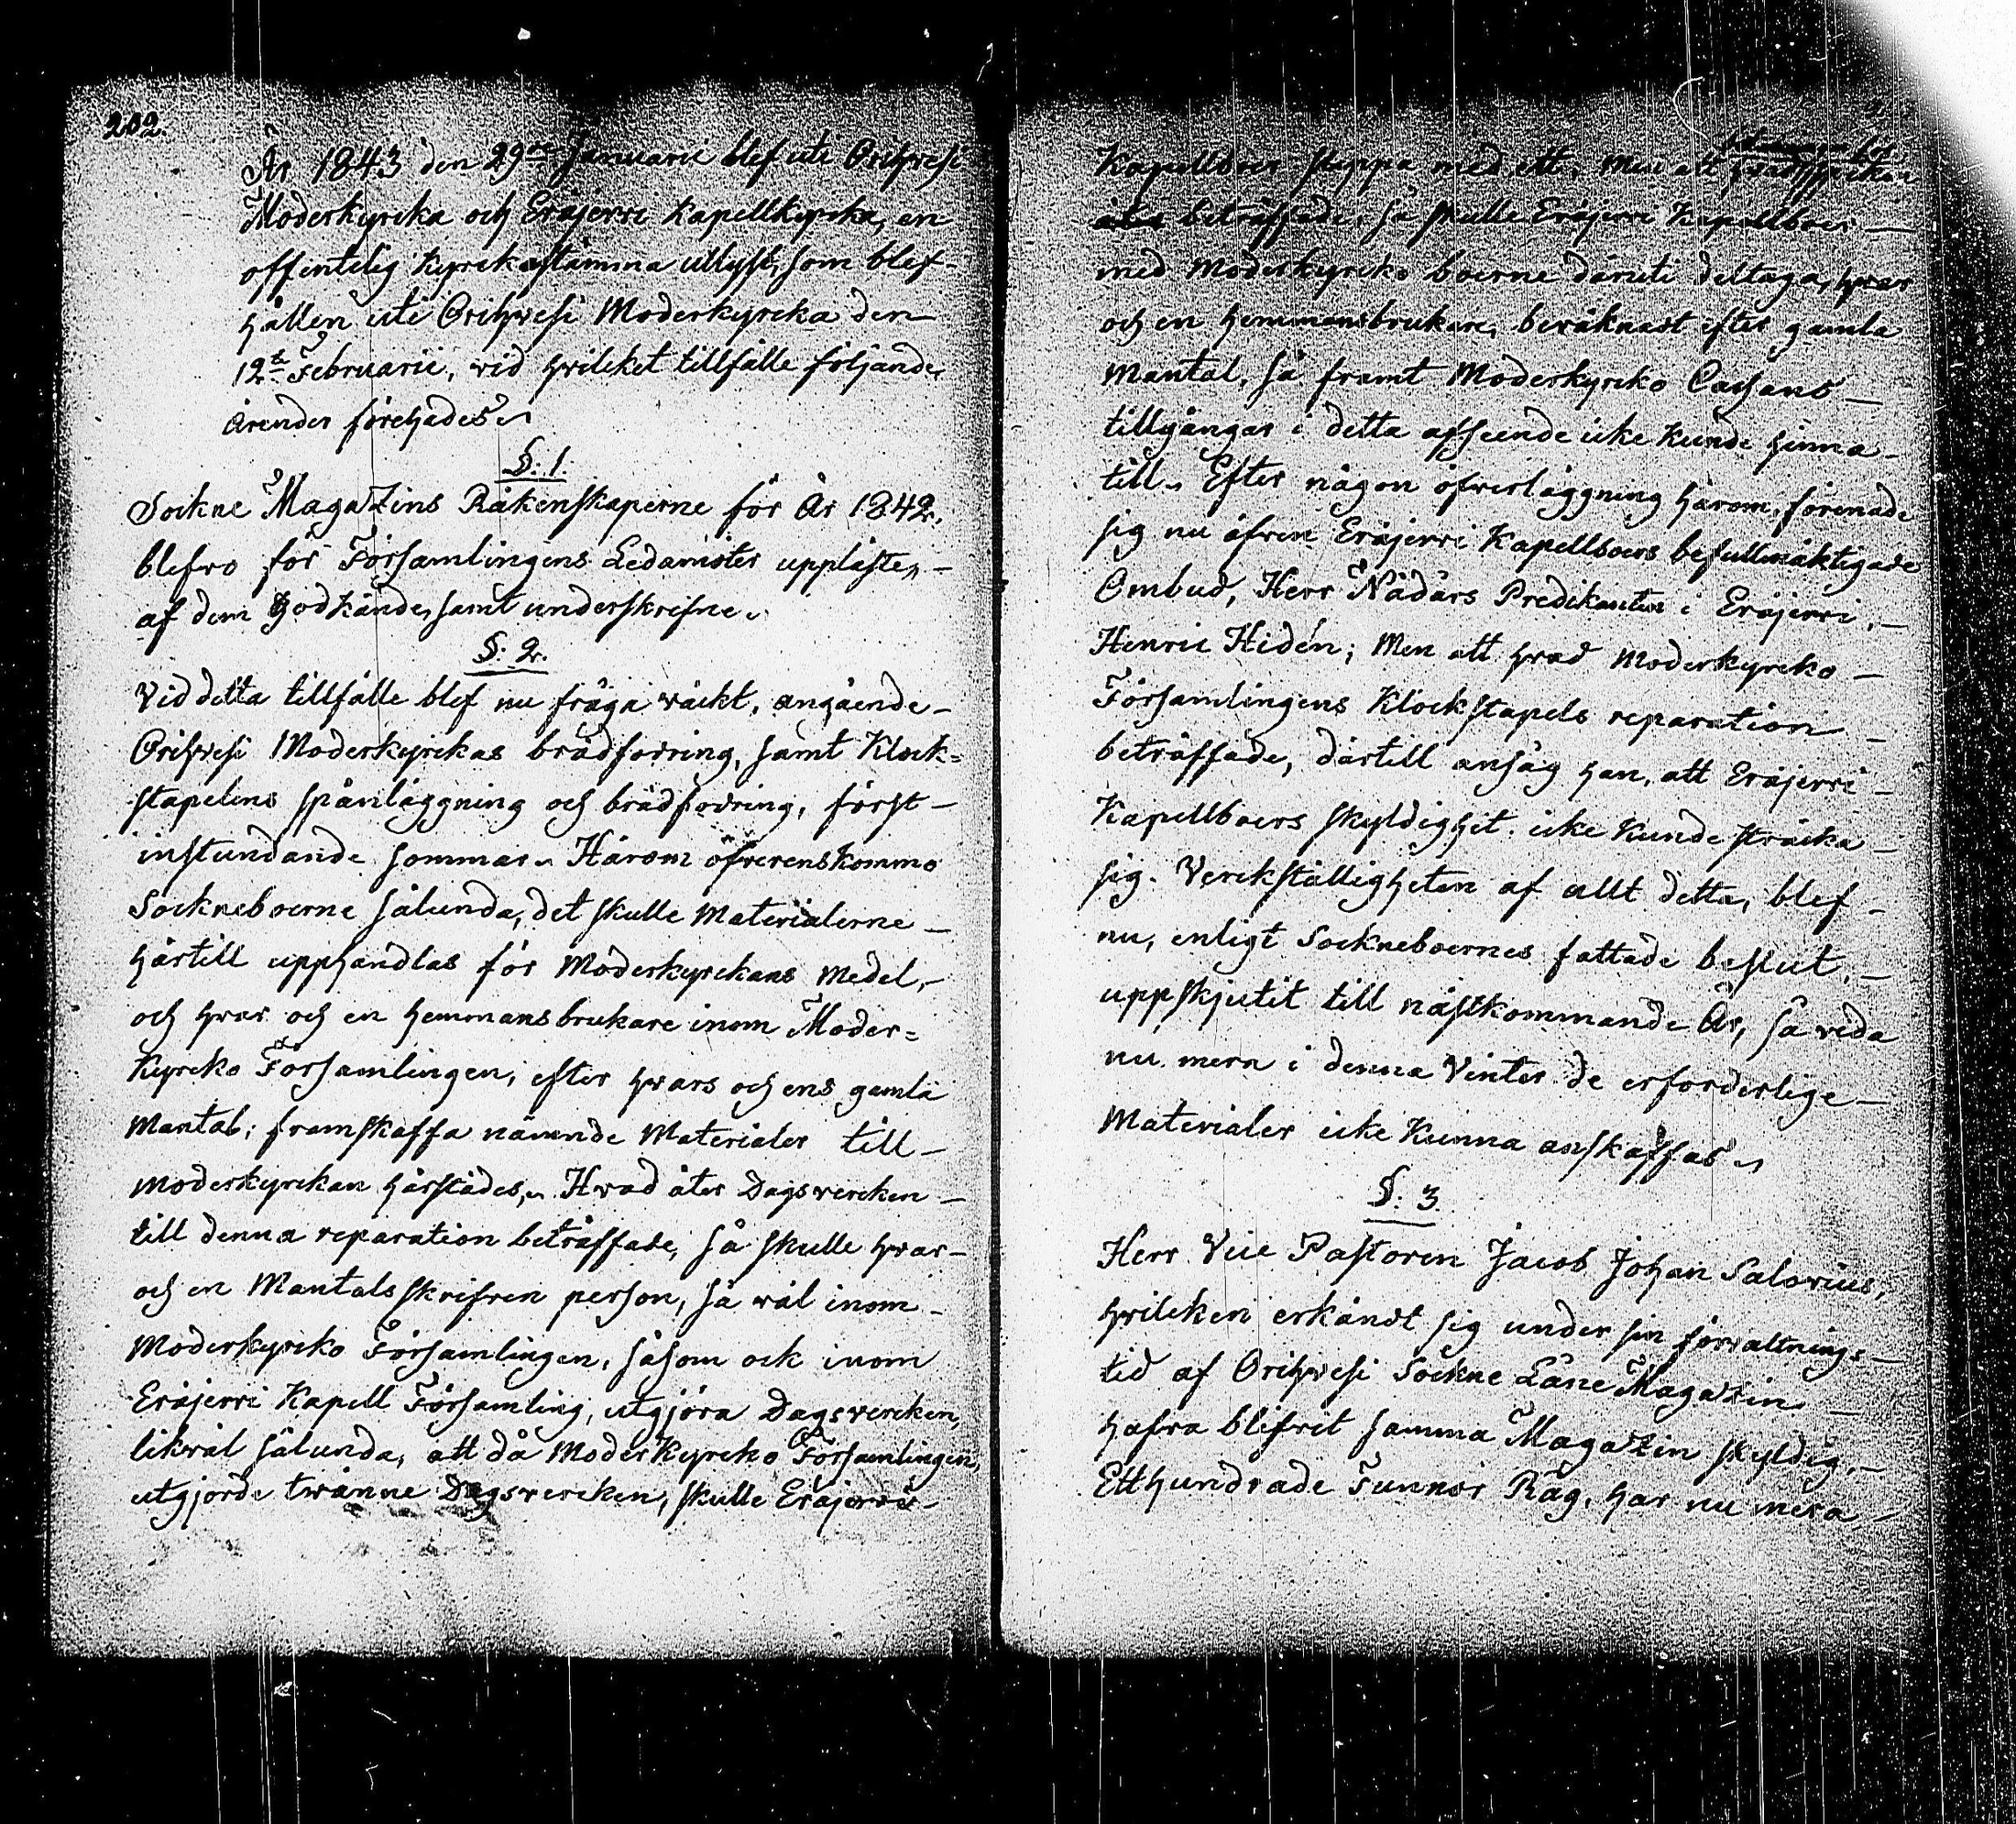 202.
År 1843 den 29de Januarii blef uti Orihvesi
Moderkyrcka och Eräjervi Kapellkyrcka, en
offentelig Kyrckostämma utlyst, som blef-
hållen uti Orihvesi Moderkyrcka den
12te Februarii, vid hvilcket tillfälle följande
ärender förehades.
§. 1.
Sockne Magazins Räkenskaperne för År 1842,
blefvo för Församlingens Ledamöter uppläste, -
af dem godkände, samt underskrifne.
§. 2.
Vid detta tillfälle blef nu fråga väckt, angående-
Orihvesi Moderkyrckas brädfodring, samt Klock=
stapelens spånläggning och brädfodring, först-
instundande sommar. Härom öfverenskommo
Sockneboerne sålunda, det skulle Materialerne -
härtill upphandlas för Moderkyrckans Medel, -
och hvar och en Hemmansbrukare inom Moder=
Kyrcko Församlingen, efter hvars och ens gamla
Mantal, framskaffa nämnde Materialer till-
moderkyrckan härstädes. Hvad åter Dagsvercken -
till denna reparation beträffade, så skulle hvar-
och en Mantalsskrifven person, så väl inom -
Moderkyrcko Församlingen, såsom ock inom
Eräjervi Kapell Församling, utgjöra Dagsvercken,
likväl sålunda, att då Moder Kyrcko Församlingen,
utgjorde tvänne Dagsvercken, skulle Eräjervi-
Kapellboer slippa med ett. Men att hvad
beträffade, så skulle Eräjervi Kapellboer -
med Moderkyrcko boerne däruti deltaga, hvar
och en Hemmansbrukare, beräknadt efter gamla
Mantal, så framt Moderkyrcko Cassans -
tillgångar i detta afseende icke kunde hinna-
till. Efter någon öfverläggning härom, förenade
sig nu äfven Eräjervi Kapellboers befullmäktigade
Ombud, Herr Nådårs Predikanten i Eräjervi, -
Henric Hidén; Men att hvad Moderkyrcko -
Församlingens Klockstapels reparation -
beträffade, därtill ansåg han, att Eräjervi -
Kapellboers skyldighet icke kunde sträcka -
sig. Verckställigheten af allt detta, blef -
nu, enligt Sockneboernes fattade beslut, -
uppskjutit till nästkommande År, så vida
nu mera i denna Vinter de erforderlige -
Materialer icke kunna anskaffas.
§. 3
Herr Vice Pastoren Jacob Johan Salovius,
hvilcken erkändt sig under sin förvaltnings-
tid af Orihvesi Sockne Låne Magazin -
hafva blifvit samma Magazin skyldig, -
Etthundrade Tunnor Råg, har nu mera -